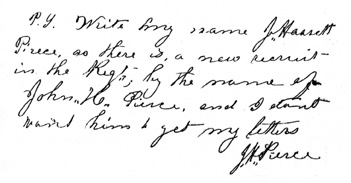 P.S. Write my name J. Hassett
Pierce, as there is, a new recruit
in the Regt, by the name of
John "H." Pierce, and I dont
want him to get my letters
J.H. Pierce